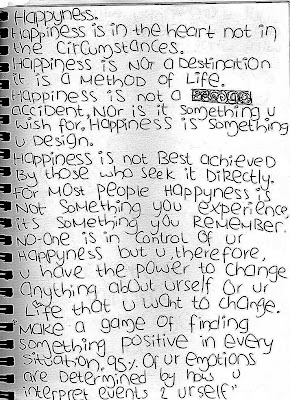 Happyness.
Happiness is in the heart not in
the circumstances.
Happiness is Not a Destination
it is a Method of Life.
Happiness is not a
accident, Nor is it something u
wish for, Happiness is something
u design.
Happiness is not Best achieved
By those who seek it Directly.
For Most people Happyness is
Not something you experience,
it's something you Remember.
No-One is in control of ur
Happyness but u, therefore,
u have the power to change
Anything about urself Or ur
Life that u want to change.
Make a game of finding
something positive in every
situation. 95% Of ur emotions
are Determined by how u
interpret events 2 urself"